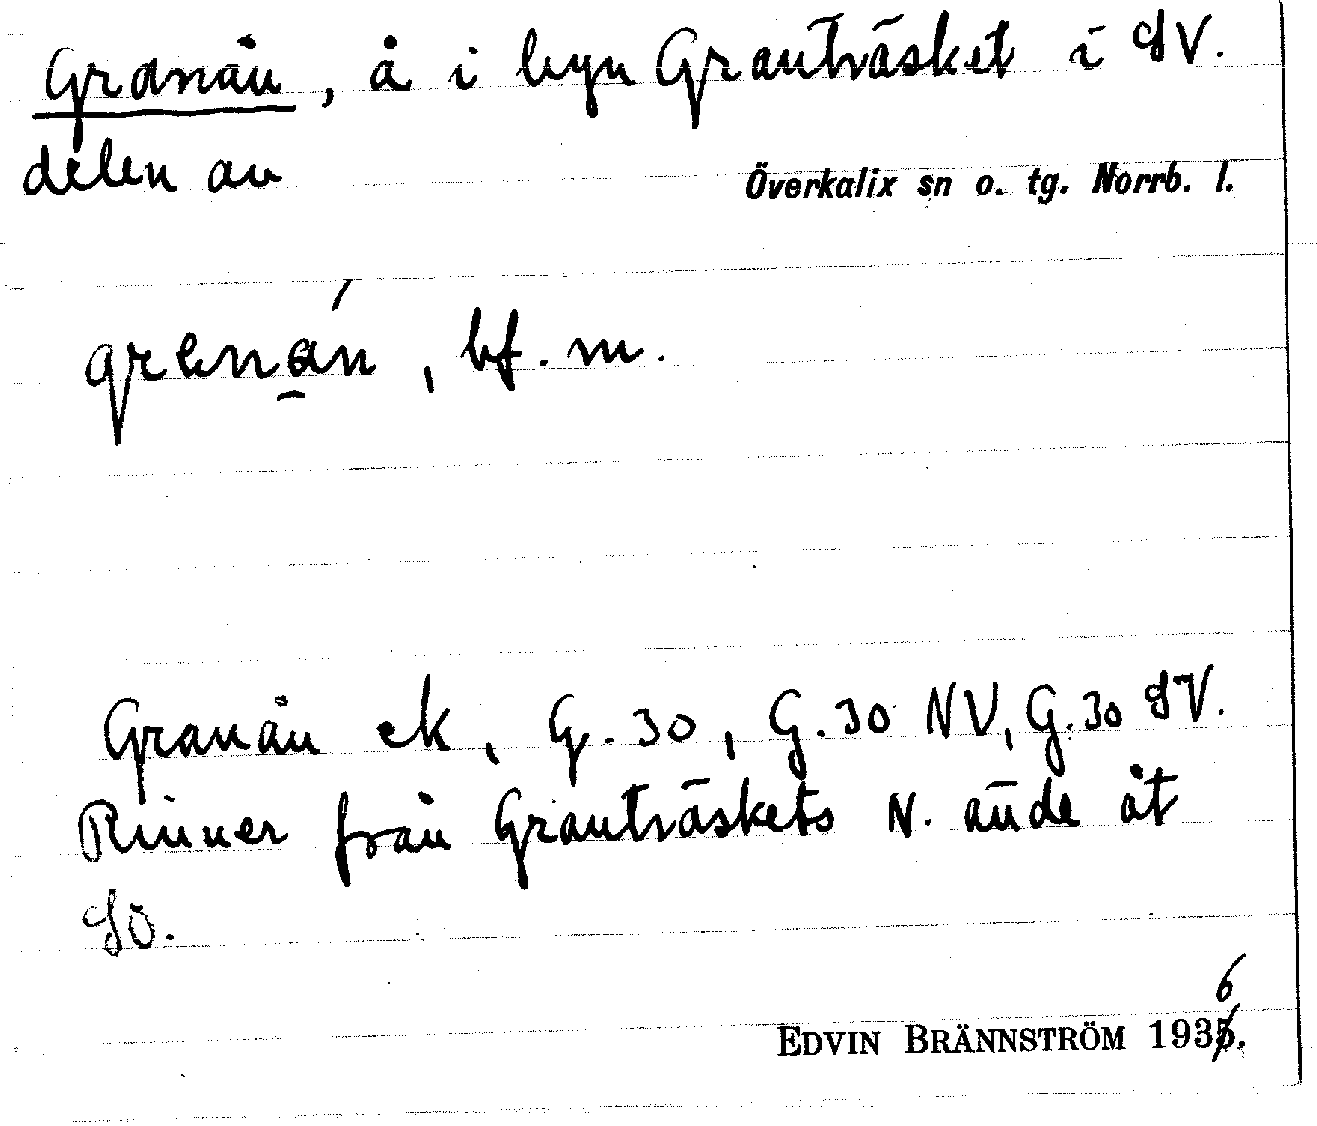 Granån, å i byn Granträsket i SV.
delen av Överkalix sn o. tg. Norrb. l.
grenά̱n, bf. m.
Granån ek, G. 30, G. 30 NV, G. 30 SV.
Rinner från Granträskets N. ände åt
SÖ.
6
EDVIN BRÄNNSTRÖM 1935.